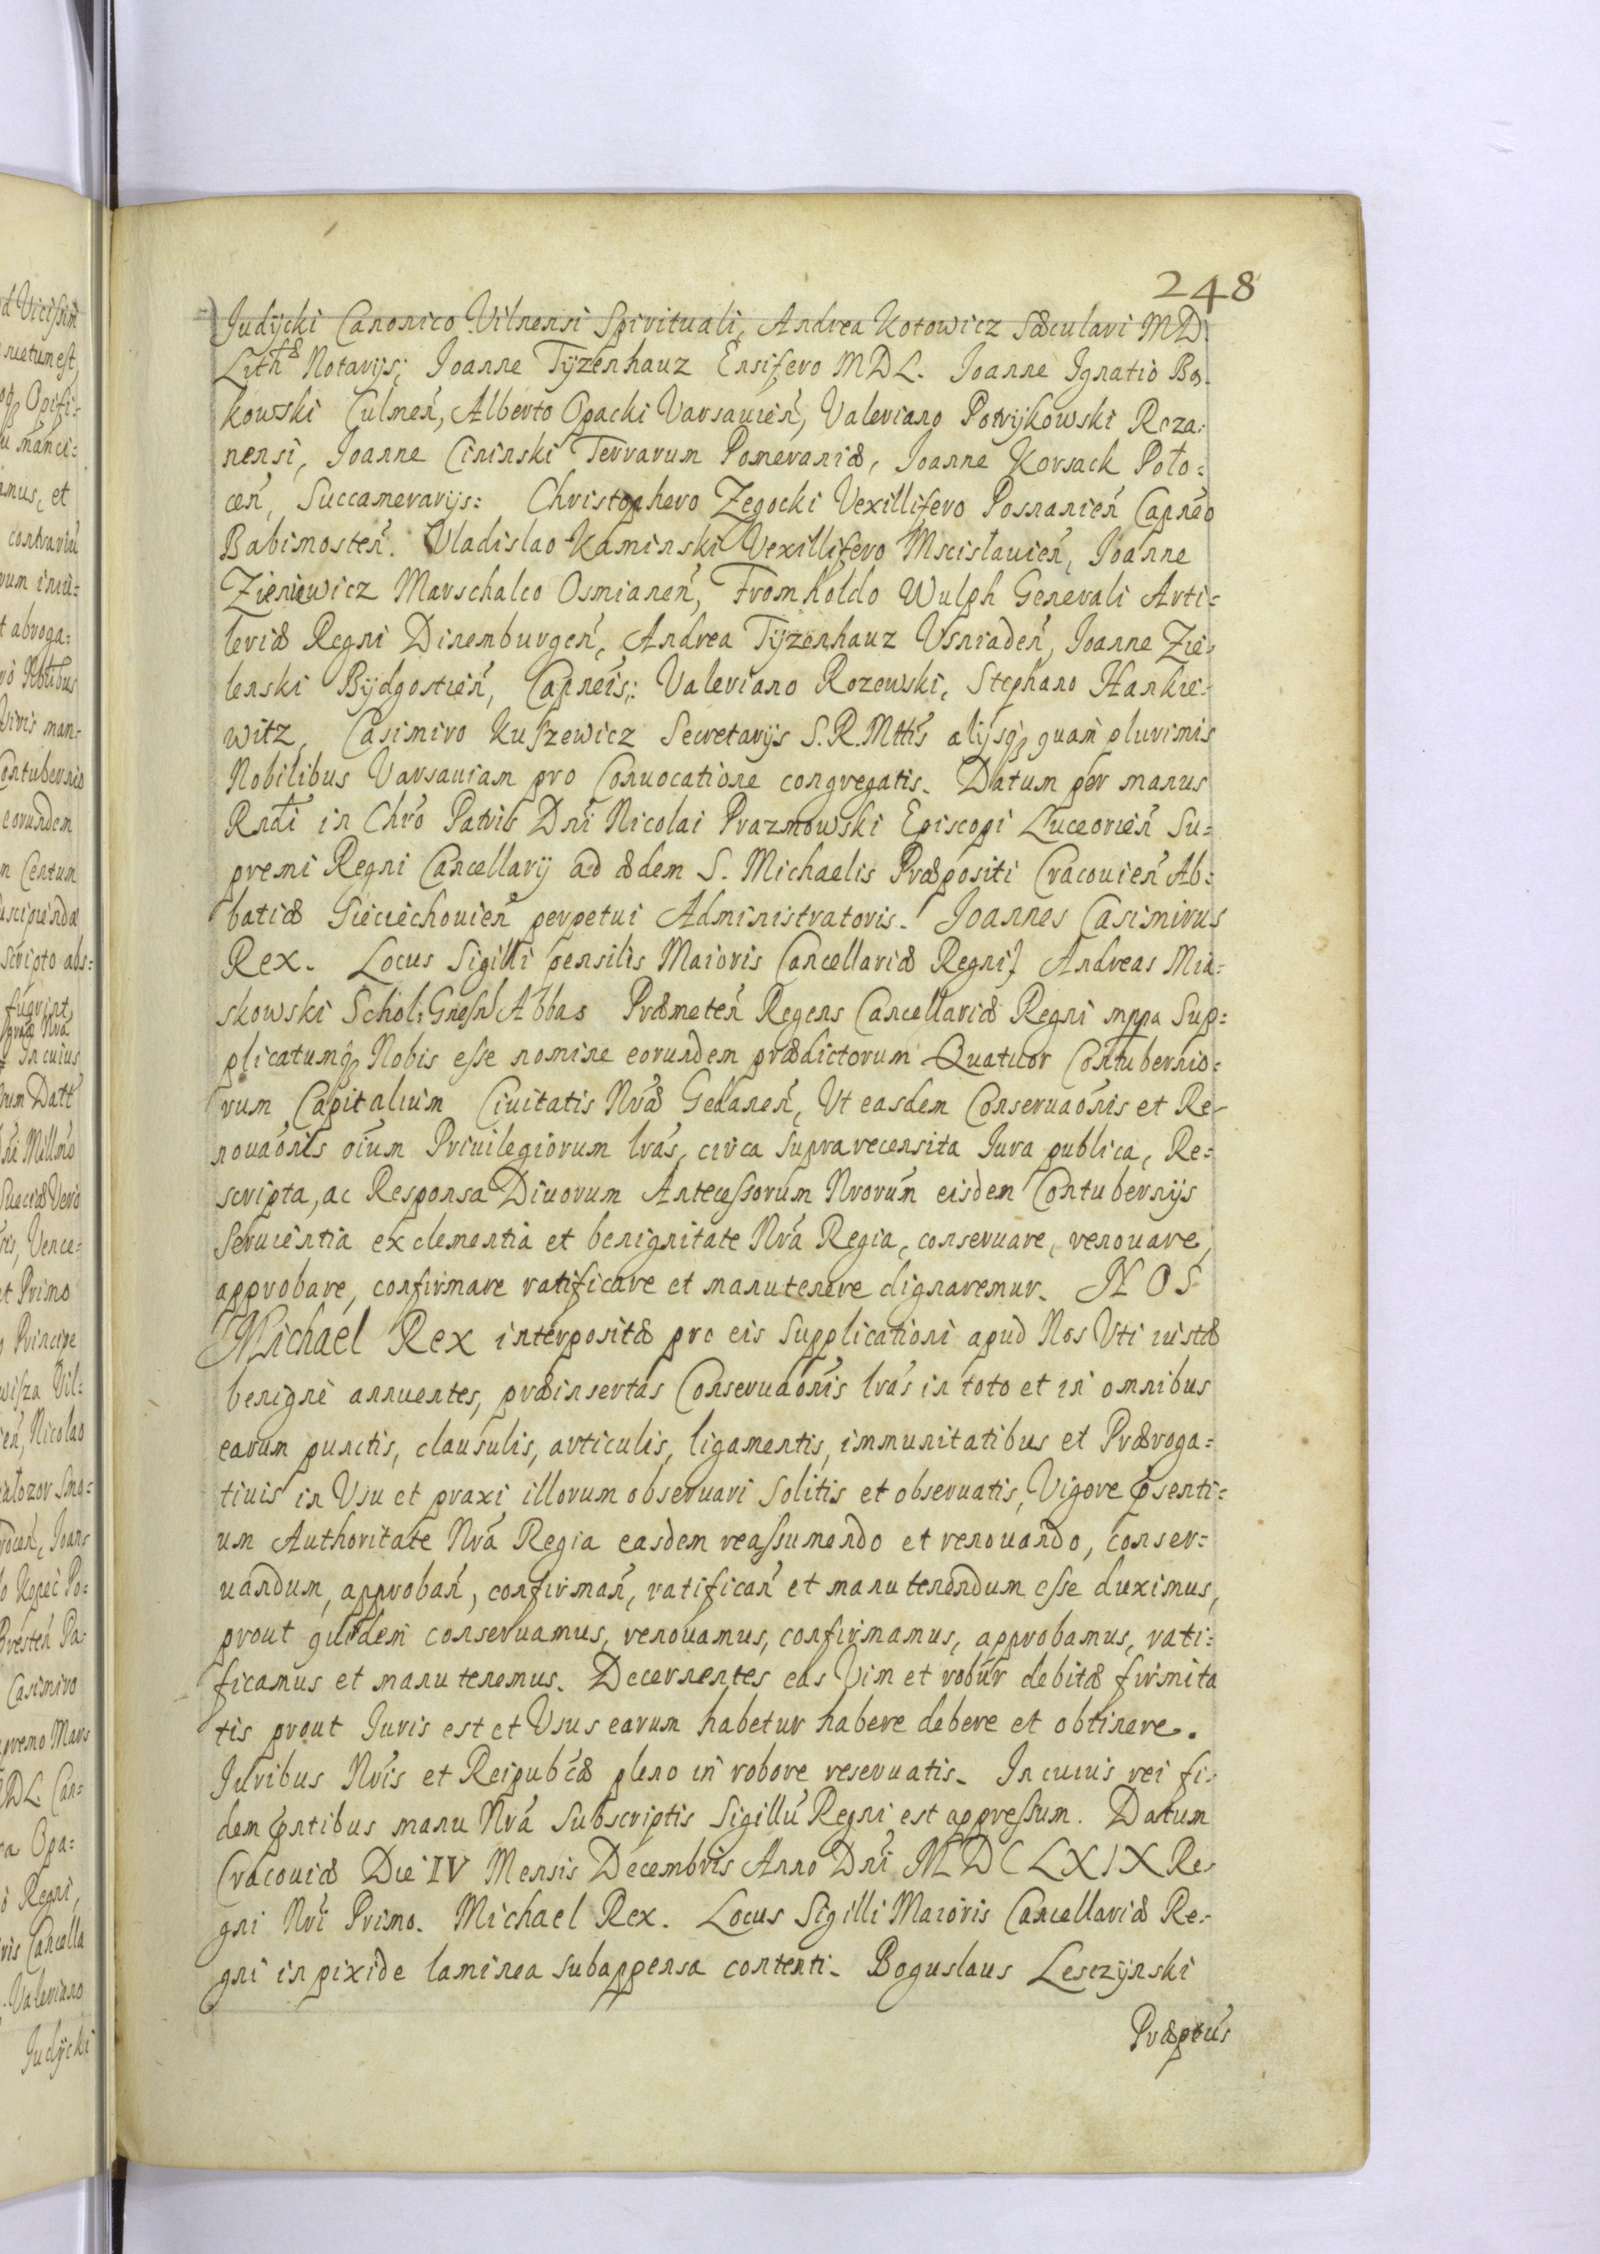 248
Judycki Canonico Vilnensi Spirituali, Andrea Kotowicz Sæculari MD.
Lithæ Notarijs; Joanne Tyzenhauz Ensifero MDL. Joanne Ignatio Ba-
kowski Culmeñ, Alberto Opacki Varsauieñ, Valeriano Potrykowski Roza-
nensi, Joanne Cininski Terrarum Pomeraniæ, Joanne Korsack Polo-
ceñ, Succamerarijs: Christophero Zegocki Vexillifero Posnanieñ Capneo
Babimosteñ. Vladislao Kaminski Vexillifero Mscislauieñ, Joanne
Zieniewicz Marschalco Osmianeñ, Fromholdo Wulph Generali Arti-
leriæ Regni Dinemburgeñ, Andrea Tyzenhauz Vsniadeñ, Joanne Zie-
lenski Bydgostieñ, Capneis: Valeriano Rozewski, Stephano Hankie-
witz, Casimiro Kuszewicz Secretarijs S.R.Mttis alijsq quam plurimis
Nobilibus Varsauiam pro Conuocatione congregatis. Datum per manus
Rndi in Chro Patris Dni Nicolai Prazmowski Episcopi Luceorieñ Su-
premi Regni Cancellarij ad ædem S. Michaelis Præpositi Cracouieñ Ab-
batiæ Sieciechouieñ perpetui Administratoris. Joannes Casimirus
Rex. Locus Sigilli pensilis Maioris Cancellariæ Regni) Andreas Mia-
skowski Schol: Gnesñ Abbas Præmeteñ Regens Cancellariæ Regni mppa Sup-
plicatumq Nobis esse nomine eorundem prædictorum Quatuor Contubernio-
rum Capitalium Ciuitatis Nræ Gedaneñ, Vt easdem Conseruaõnis et Re-
nouaõnis oium Priuilegiorum lras, circa supra recensita Jura publica, Re-
scripta, ac Responsa Diuorum Antecessorum Nrorum eisdem Contubernijs
Seruientia ex clementia et benignitate Nra Regia, conseruare, renouare,
approbare, confirmare ratificare et manutenere dignaremur. NOS
Michael Rex interpositæ pro eis supplicationi apud Nos Vti iustæ
benigne annuentes, præinsertas Conseruaõnis lras in toto et in omnibus
earum punctis, clausulis, articulis, ligamentis, immunitatibus et Præroga-
tiuis in Vsu et praxi illorum obseruari solitis et obseruatis, Vigore pсenti-
um Authoritate Nra Regia easdem reassumendo et renouando, conser-
uandum, approbañ, confirmañ, ratificañ et manutenendum esse duximus,
prout quidem conseruamus, renouamus, confirmamus, approbamus, rati-
ficamus et manutenemus. Decernentes eas Vim et robur debitæ firmita
tis prout Juris est et Vsus earum habetur habere debere et obtinere.
Juribus Nris et Reipubcæ pleno in robore reseruatis. In cuius rei fi-
dem pntibus manu Nra subscriptis Sigillũ Regni est appressum. Datum
Cracouiæ Die IV Mensis Decembris Anno Dni MDCLXIX Re-
gni Nri Primo. Michael Rex. Locus Sigilli Maioris Cancellariæ Re-
gni in pixide laminea subappensa contenti. Boguslaus Lesczynski
Præptus